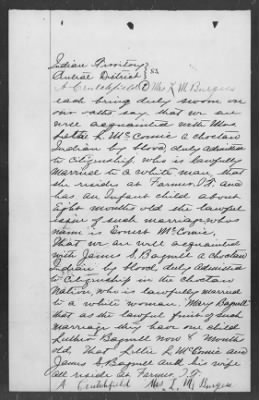 Indian Territory
Central District } SS.
A Crutchfield & Mrs L M Burgess
each being duly sworn on
our oaths say that we are
well acquainted with Mrs
Lettie L McComic a choctaw
Indian by blood, duly admitted
to Citizenship, who is lawfully
Married to a white man, that
she resides at Farmer, I.T. and
has an infant child about
eight months old the lawful
issue of such marriage, whos
name is Ernest McComic,
That we are well acquainted
with James S. Bagwell a choctaw
Indian by blood, duly admitted
to citizenship in the choctaw
Nation, who is lawfully married
to a white woman, Mary Bagwell
that as the lawful fruit of such
marriage they have one child
Luther Bagwell now 8 months
old, That Lettie L McComic and
James S Bagwell and his wife
all reside at Farmer I.T.
A Crutchfield Mrs. L. M. Burgess